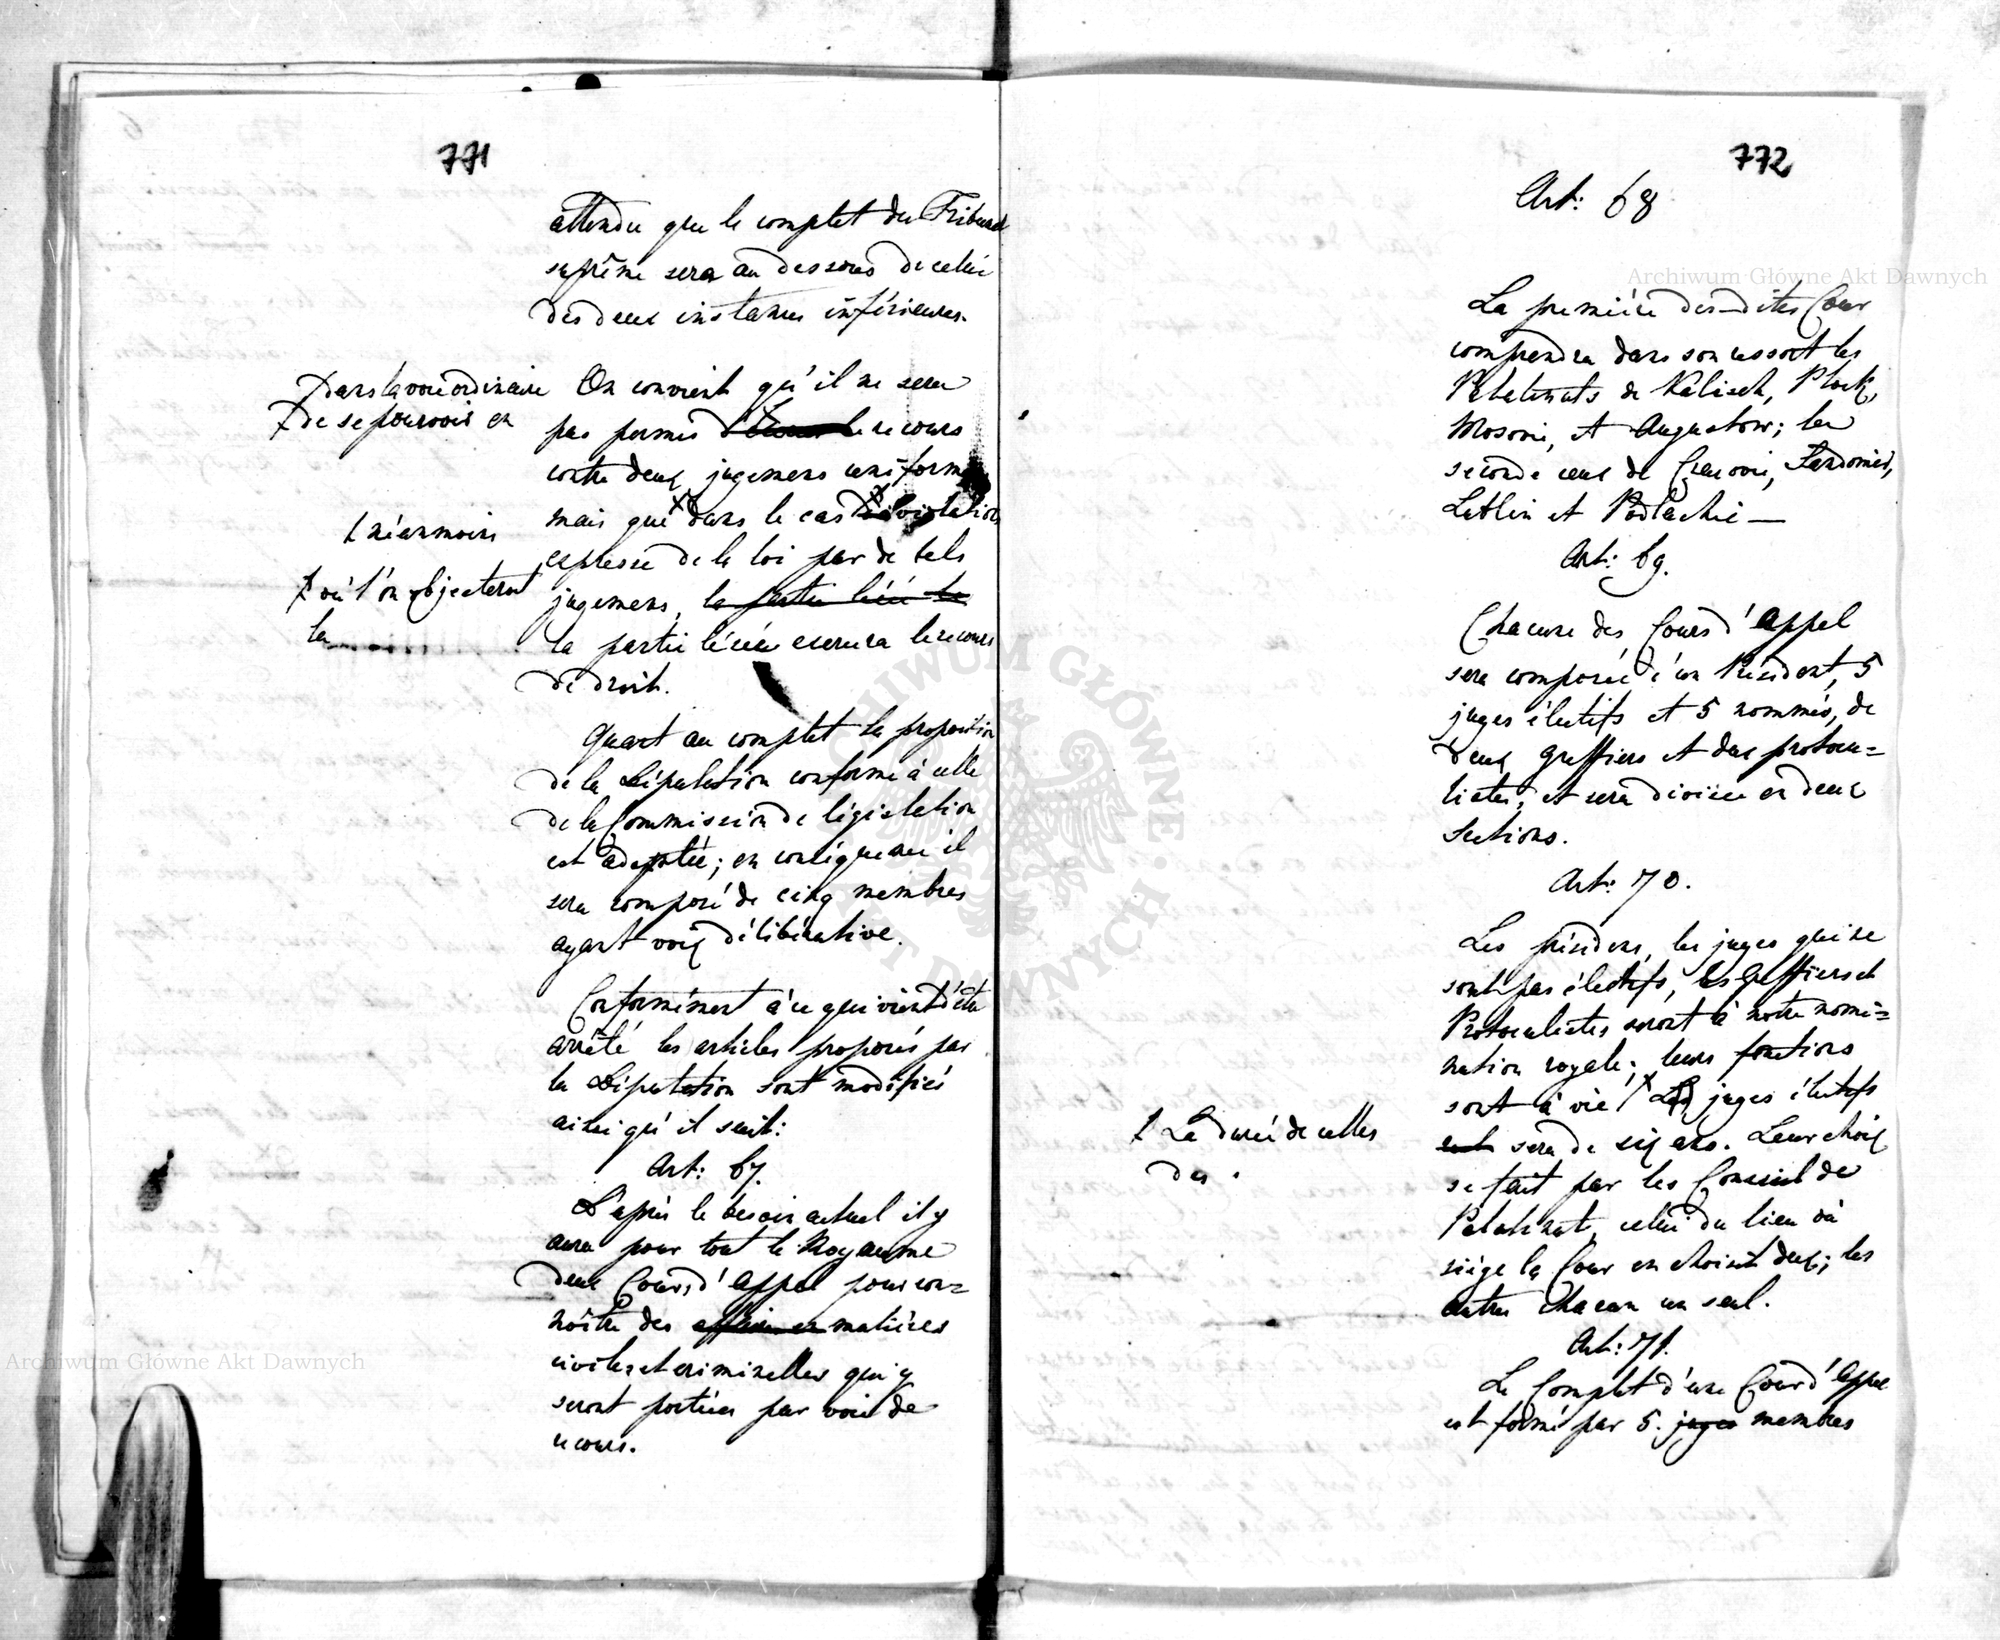 771
attendu que le complet du Tribunal
suprême sera au dessous de celui
des deux instances inférieures.
dans la voie ordinaire
de se pourvoir en
On convient qu'il ne sera
pas permis le recours
contre deux jugemens uniformes
mais que dans le cas violation
néanmoins
expresse de la loi par de tels
où l'on objecteroit
la
jugemens, la partie lésée le
la partie lésée exercera le recours
de droit.
Quant au complet la proposition
de la Députation conforme à celle
de la Commission de législation
est adoptée; en conséquence il
sera composé de cinq membres
ayant voix délibérative.
Conformément à ce qui vient d'être
arrêté les articles proposés par
la Députation sont modifiés
ainsi qu'il suit:
Art: 67.
D'après le besoin actuel il y
aura pour tout le Royaume
deux Cours d'appel pour con=
noître des affaires en matières
civiles et criminelles qui y
seront portées par voie de
recours.
772
Art: 68
La première des-dites Cour
comprendra dans son ressort les
Palatinats de Kalisch, Plock,
Mosovie, et Augustow; la
seconde ceux de Cracovie, Sandomir,
Lublin et Podlachie —
Art: 69.
Chacune des Cours d'appel
sera composée d'un Président, 5
juges électifs et 5 nommés, de
deux greffiers et deux protocu=
listes, et sera divisée en deux
Sections.
Art: 70.
Les présidens, les juges qui ne
sont pas électifs, les greffiers et
Protocolistes seront à notre nomi=
nation royale; leurs fonctions
sont à vie Les juges électifs
La durée de celles
des
sera de six ans. Leur choix
se fait par les Conseil de
Palatinat, celui du lieu où
siège la Cour en choisit deux; les
autres chacun un seul.
Art: 71.
Le Complet d'une Cour d'appel
est formé par 5. juges membres
Archiwum Główne Akt Dawnych
Archiwum Główne Akt Dawnych
ARCHIWUM GŁÓWNE AKT DAWNYCH